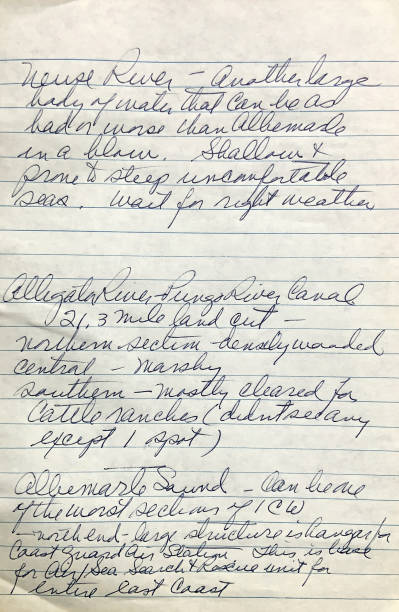 Neuse River - Another large
body of water that can be as
bad or worse than Albemarle
in a blow. Shallow &
prone to steep uncomfortable
seas. Wait for right weather
Alligator River-Pungo River Canal
21.3 mile land cut -
northern section - densely wooded
central - marshy
southern - mostly cleared for
cattle ranches (didn't see any
except 1 spot)
Albemarle Sound - Can be one
of the worst sections of ICW
- north end - large structure is hangar for
Coast Guard Air Station - This is base
for Air/Sea Search & Rescue unit for
entire east Coast